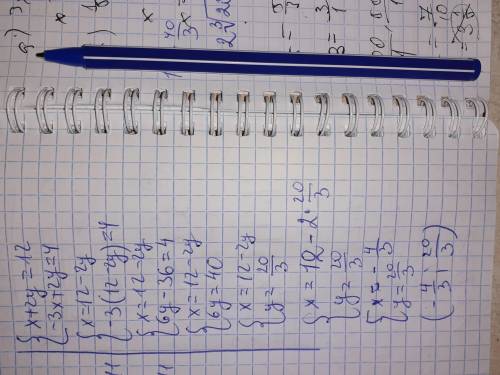 {x+2y=12
{-3x+2y=4
{x=12-2y
{-3(12-2y)=4
{x=12-2y
{6y-36=4
{x=12-2y
{6y=40
{x=12-2y
{y=20/3
{x=12-2·20/3
{y=20/3
{x=-4/3
{y=20/3
(-4/3; 20/3)